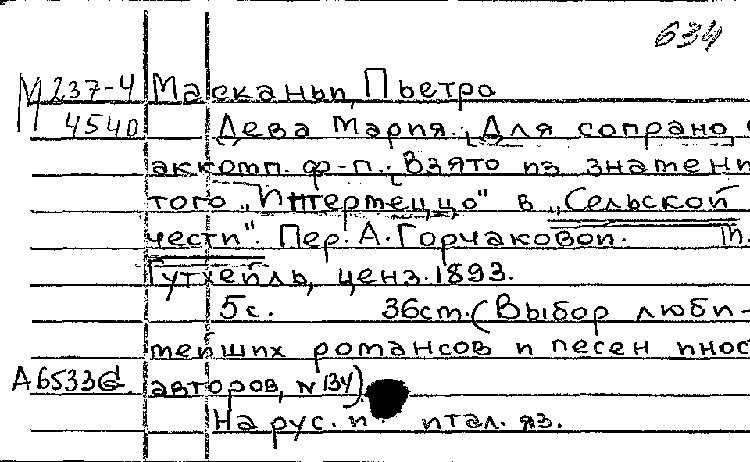 634
М 237-4 Масканьи, Пьетро
4540 Дева Мария. Для сопрано с
аккомп. ф-п. Взято из знамени
того „Интермеццо" в „Сельской
чести". Пер. А. Горчаковой. М.
Гутхейль, ценз. 1893.
5 с. 36 см. (Выбор люби-
мейших романсов и песен инос
А6533 авторов, №134)
На рус. и итал. яз.